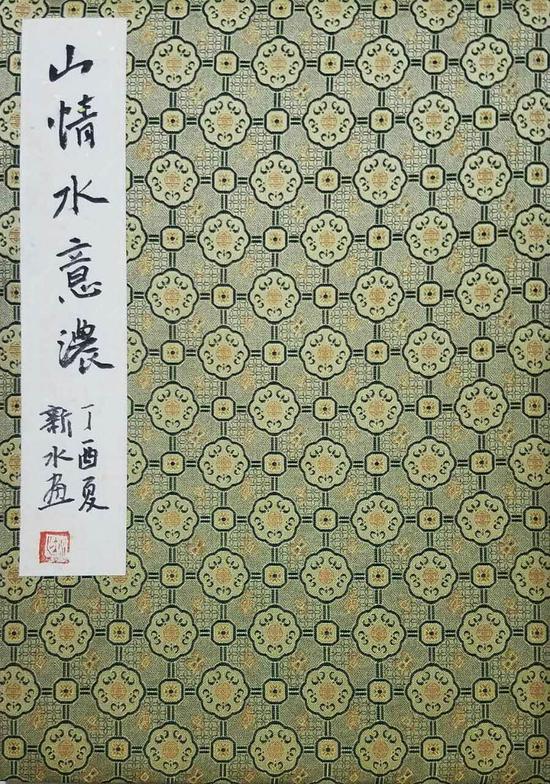 山情水意濃
丁酉夏
新水画